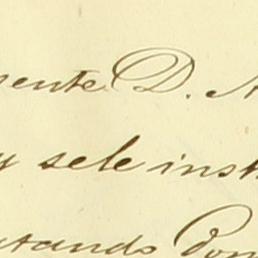 sente D. A
y sele inst
utando Don